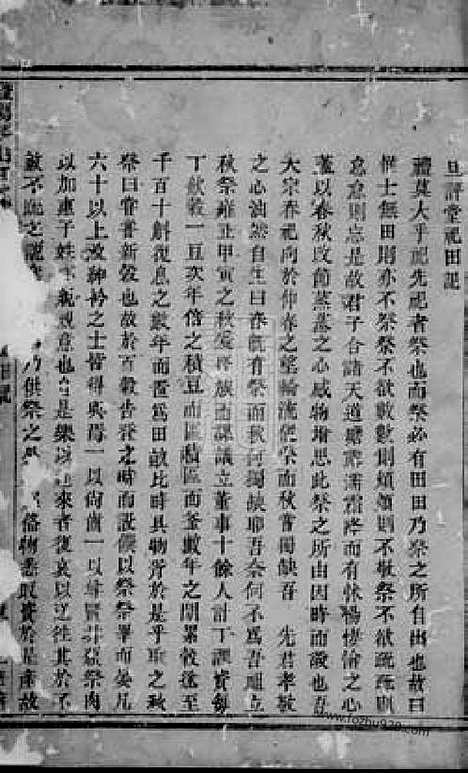 旦評堂祀田記
禮莫大乎祀先祀者祭也而祭必有田田乃祭之所自出也故曰
惟士無田則亦不祭祭不欲數數則煩煩則不敬祭不欲疏疏則
怠怠則忘是故君子合諸天道雨露既濡霜降而有悽愴之心
以春秋改節蒸蒸之心感物增思此祭之所由因時而設也
大宗春祀向於仲春之望輪流俻祭而秋嘗獨缺吾 先君孝敬
之心油然自生曰春既有祭而秋何獨缺耶吾奈何不為吾祖立
秋祭雍正甲寅之秋爰集族而謀議立董事十餘人計丁
丁飲穀一豆次年倍之積豆而區積區而釜數年之間累穀至
千百十斛復息之數年而置為田畝比時具物胥於是乎取之秋
祭曰嘗嘗新穀也故於百穀告登之時而設饌以祭祭畢而宴凡
六十以上及紳衿之士皆得與焉一以尚齒一以祭肉
以加惠子姓示親親意也於是樂以迎來者復哀以送往其於不
敢不臨之 乃供祭之 俻物悉取資於是產故
www.fozhu920.com